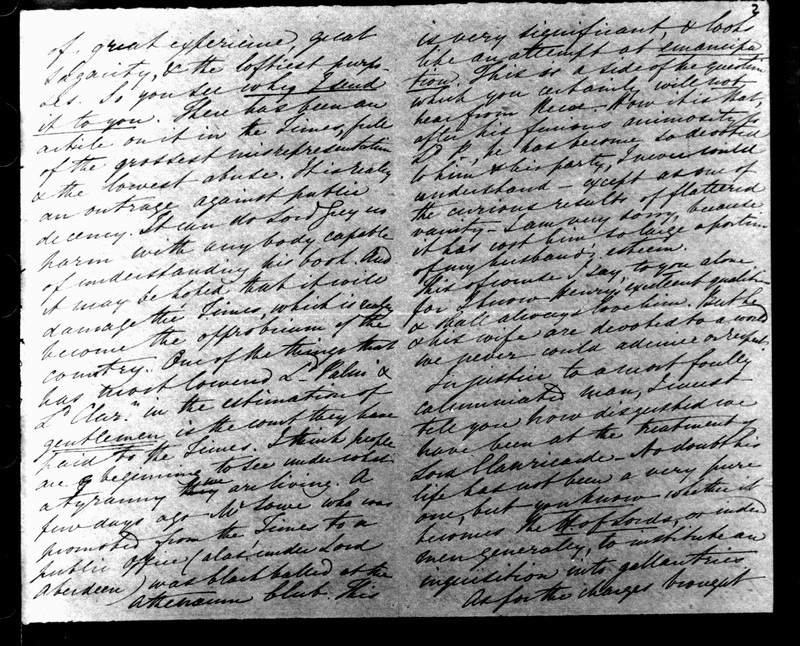 of great experience, great
sagacity, & the loftiest purpo-
ses. So you see why I send
it to you. There has been an
article on it in the Times, full
of the grossest misrepresentation
& the lowest abuse. It is really
an outrage against public
decency. It can do Lord Grey no
harm with any body capable
of understanding his book. And
it may be hoped that it will
damage the Times, which is really
become the opprobrium of the
country. One of the things that
has most lowered Ld. Palm. &
Ld. Clar.n in the estimation of
gentlemen is the court they have
paid to the Times. I think people
are beginning to see under what
a tyranny they are living. A
few days ago Mr Lowe who was
promoted from the Times to a
public office (alas under Lord
Aberdeen) was blackballed at the
Athenaeum Club. This
2
is very significant, & looks
like an attempt at emancipa
tion. This is a side of the question
which you certainly will not
hear from Reeve. How it is that,
after his furious animosity to
Ld P., he has become so devoted
to him & his party, I never could
understand - except as one of
the curious results of flattered
vanity - I am very sorry, because
it has cost him so large a portion
of my husband's esteem.
This of course I say to you alone
for I know Henry's excellent qualities
& shall always love him. But he
& his wife are devoted to a world
we never could admire or respect.
In justice to a most foully
calumniated man, I must
tell you how disgusted we
have been at the treatment of
Lord Clanricarde - No doubt his
life has not been a very pure
one, but you know whether it
becomes the H of Lords, or indeed
men generally, to institute an
inquisition into gallantries
As for the charges brought